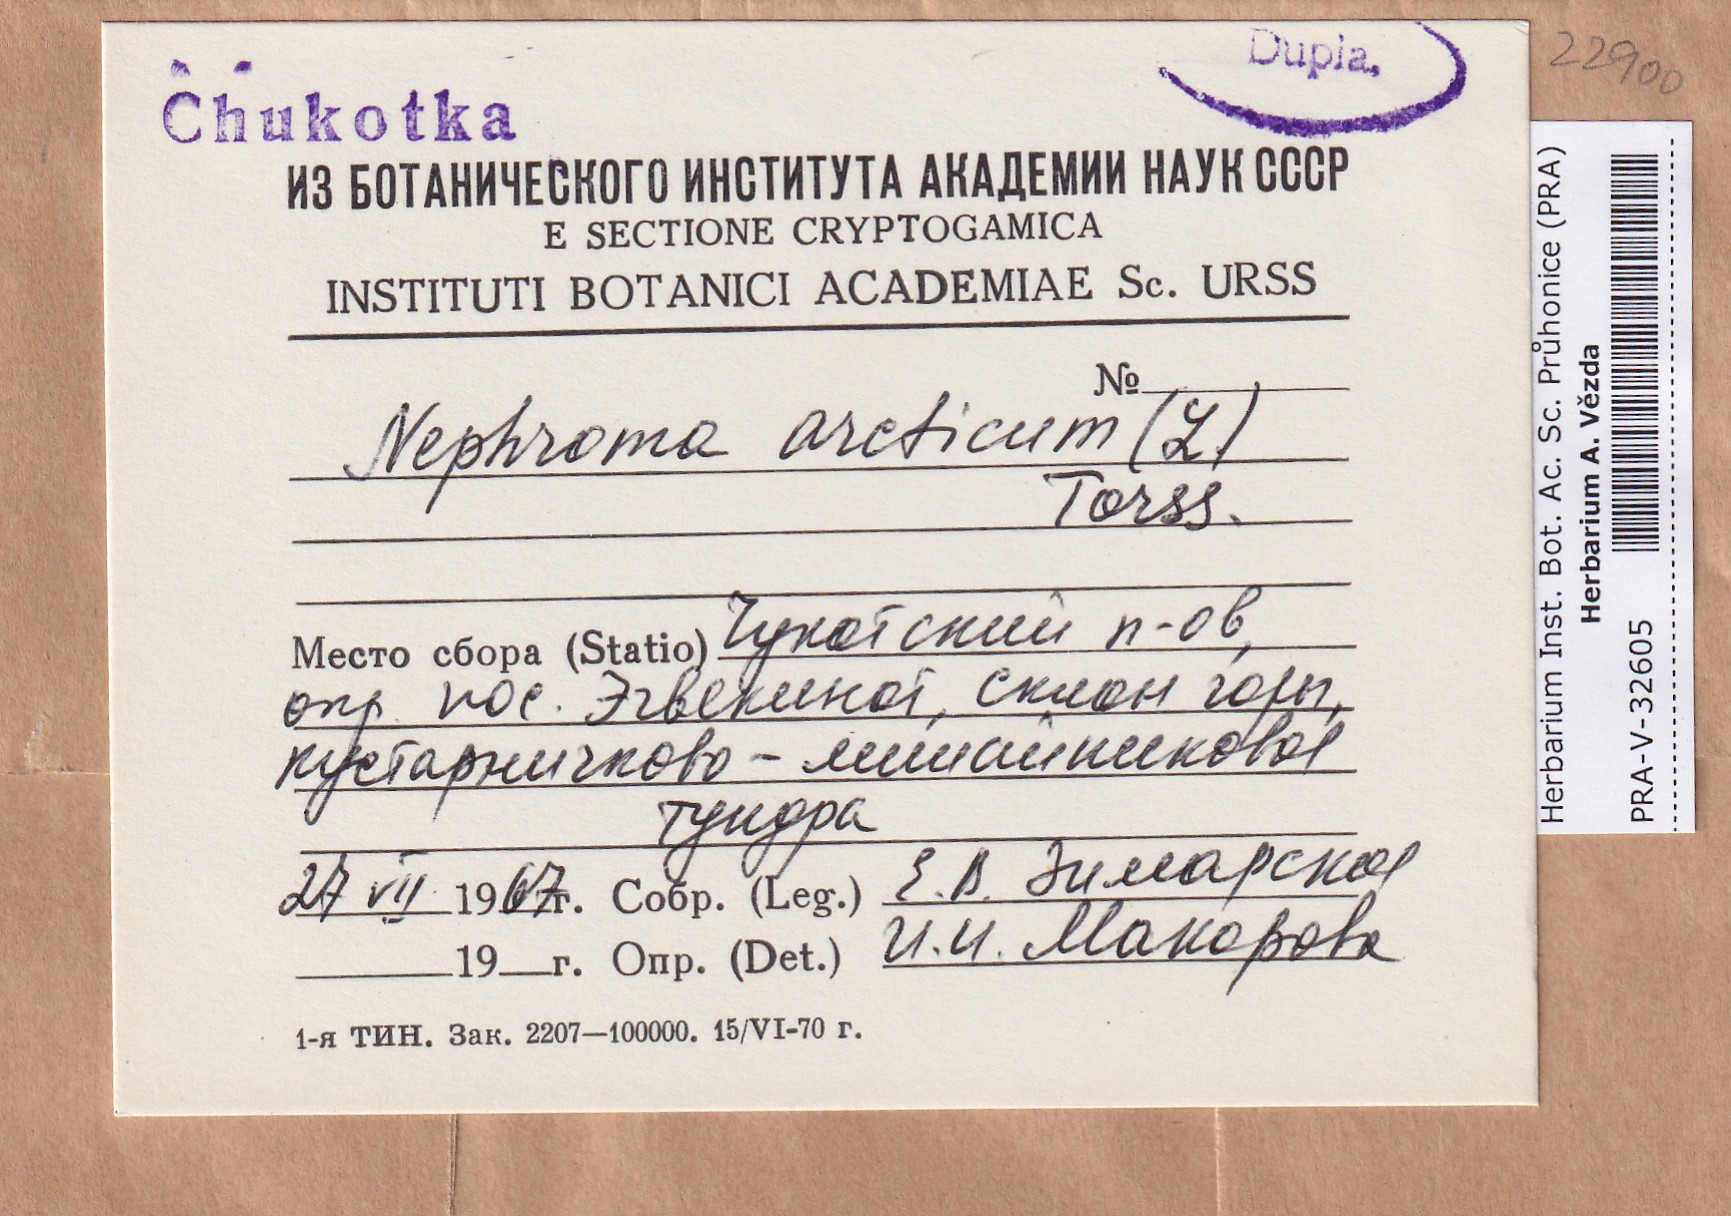 Dupla.
22900
Chukotka
ИЗ БОТАНИЧЕСКОГО ИНСТИТУТА АКАДЕМИИ НАУК СССР
E SECTIONE CRYPTOGAMICA
INSTITUTI BOTANICI ACADEMIAE Sc. URSS
№
Nephroma arcticum (L)
Torss.
Место сбора (Statio) Чукотский п-ов,
окр. пос. Эгвекинот, склон горы,
кустарничково - лишайниковая
тундра
27 VII 1967г. Собр. (Leg.) Е.В. Зимарская
19 г. Опр. (Det.) И.И. Макарова
1-я ТИН. Зак. 2207—100000. 15/VI-70 г.
Herbarium Inst. Bot. Ac. Sc. Průhonice (PRA)
Herbarium A. Vězda
PRA-V-32605